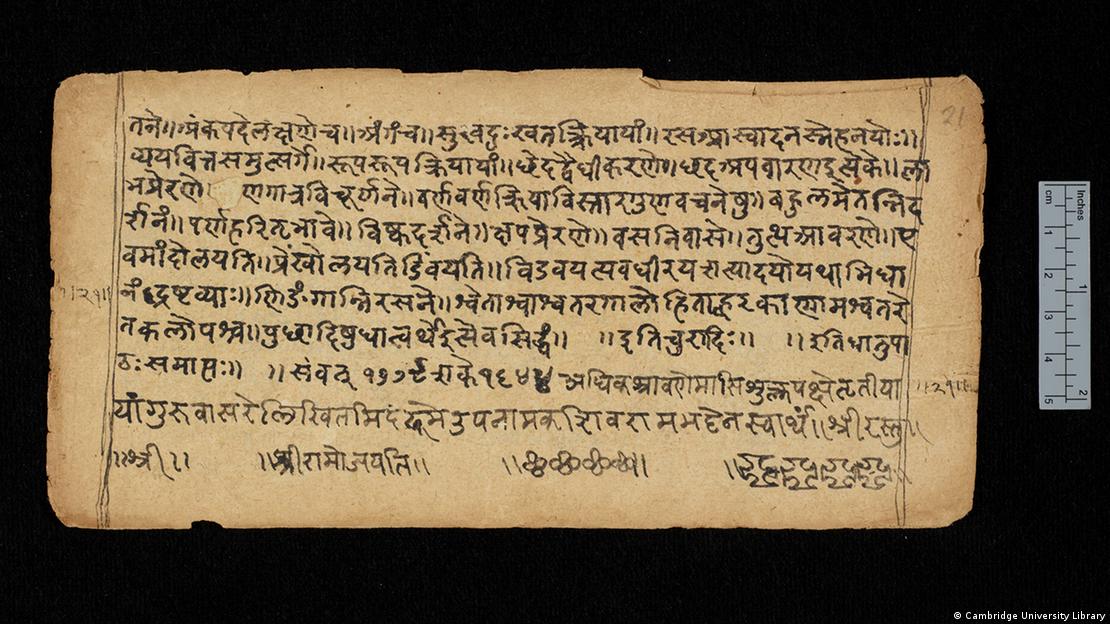 तने॥ अंक पदे लक्षणे च॥ अंग च॥ सुख दुःख तत्क्रियायां॥ रस आस्वादनस्नेहनयोः॥
व्यय वित्तसमुत्सर्गे॥ रूप रूपक्रियायां॥ छेद द्वैधीकरणे॥ छद अपवारण इत्येके॥ ला
भ प्रेरणे॥ व्रण गात्रविचूर्णने॥ वर्ण वर्णक्रियाविस्तारगुणवचनेषु॥ बहुलमेतन्निद
र्शनं॥ पर्ण हरितभावे॥ विष्क दर्शने॥ क्षप प्रेरणे॥ वस निवासे॥ तुत्थ आवरणे॥ ए
वमांदोलयति॥ प्रेंखोलयति विडंबयति॥ अवधीरय इत्यादयोयथाभिधा
नं द्रष्टव्याः॥ णिङंगान्निरसने॥ श्वेताश्वाश्वतरगालोडिताह्वरकाणामश्वतरे
तकलोपश्च॥ पुच्छादिषु धात्वर्थ इत्येव सिद्धं॥ ॥इति चुरादिः॥ ॥इति धातुपा
ठः समाप्तः॥ ॥संवत् शके अधिकश्रावणेमासि शुक्लपक्षे तृतीया
यां गुरुवासरे लिखितमिदं उपनामक स्वार्थं॥ श्रीरस्तु॥
॥श्री॥ ॥श्रीरामोजयति॥
॥२१॥
॥२१॥
21
Inches
cm
1
2
1
2
3
4
5
© Cambridge University Library